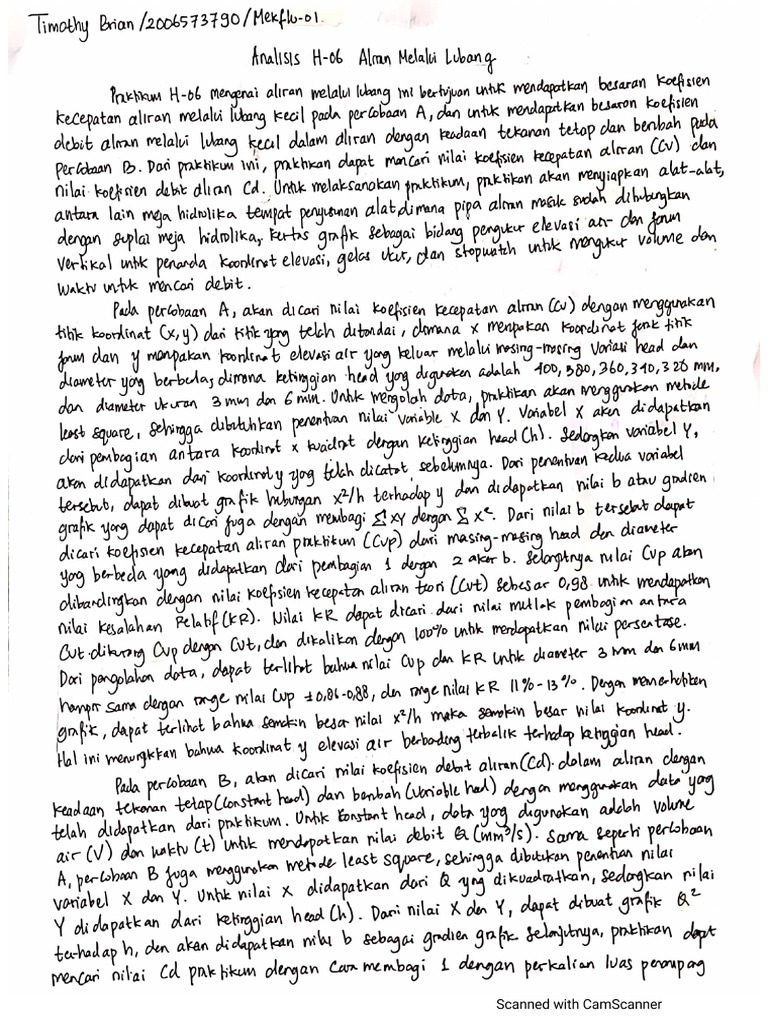 Timothy Brian/2006573790/Mekflu-01.
Analisis H-06 Aliran Melalui Lubang
Praktikum H-06 mengenai aliran melalui lubang ini bertujuan untuk mendapatkan besaran koefisien
kecepatan aliran melalui lubang kecil pada percobaan A, dan untuk mendapatkan besaran koefisien
debit aliran melalui lubang kecil dalam aliran dengan keadaan tekanan tetap dan berubah pada
Percobaan B. Dari praktikum ini, praktikan dapat mencari nilai koefisien kecepatan aliran (Cv) dan
nilai koefisien debit aliran Cd. Untuk melaksanakan praktikum, praktikan akan menyiapkan alat-alat,
antara lain meja hidrolika tempat penyusunan alat dimana pipa aliran masuk sudah dihubungkan
dengan suplai meja hidrolika, kertas grafik sebagai bidang pengukur elevasi air dan jarum
vertikal untuk penanda koordinat elevasi, gelas ukur, dan stopwatch untuk mengukur volume dan
waktu untuk mencari debit.
Pada percobaan A, akan dicari nilai koefisien kecepatan aliran (Cv) dengan menggunakan
titik koordinat (x,y) dari titik yang telah ditandai, dimana x merupakan koordinat jarak titik
jarum dan y merupakan koordinat elevasi air yang keluar melalui masing-masing variasi head dan
diameter yang berbeda, dimana ketinggian head yang digunakan adalah 400, 380, 360, 340, 320 mm,
dan diameter ukuran 3 mm dan 6 mm. Untuk mengolah data, praktikan akan menggunakan metode
least square, sehingga dibutuhkan penentuan nilai variable X dan Y. Variabel X akan didapatkan
dari pembagian antara koordinat x kuadrat dengan ketinggian head (h). Sedangkan variabel Y,
akan didapatkan dari koordinat y yang telah dicatat sebelumnya. Dari penentuan kedua variabel
tersebut, dapat dibuat grafik hubungan x²/h terhadap y dan didapatkan nilai b atau gradien
grafik yang dapat dicari juga dengan membagi ∑xy dengan ∑x². Dari nilai b tersebut dapat
dicari koefisien kecepatan aliran praktikum (Cvp) dari masing-masing head dan diameter
yang berbeda yang didapatkan dari pembagian 1 dengan 2 akar b. Selanjutnya nilai Cvp akan
dibandingkan dengan nilai koefisien kecepatan aliran teori (Cvt) sebesar 0,98 untuk mendapatkan
nilai Kesalahan Relatif (KR). Nilai KR dapat dicari dari nilai mutlak pembagian antara
Cvt dikurang Cvp dengan Cvt, dan dikalikan dengan 100% untuk mendapatkan nilai persentase.
Dari pengolahan data, dapat terlihat bahwa nilai Cvp dan KR untuk diameter 3 mm dan 6 mm
hampir sama dengan range nilai Cvp ±0,86-0,88, dan range nilai KR 11%-13%. Dengan memerhatikan
grafik, dapat terlihat bahwa semakin besar nilai x²/h maka semakin besar nilai koordinat y.
Hal ini menunjukkan bahwa koordinat y elevasi air berbanding terbalik terhadap ketinggian head.
Pada percobaan B, akan dicari nilai koefisien debit aliran (Cd) dalam aliran dengan
keadaan tekanan tetap (constant head) dan berubah (variable head) dengan menggunakan data yang
telah didapatkan dari praktikum. Untuk constant head, data yang digunakan adalah volume
air (V) dan waktu (t) untuk mendapatkan nilai debit Q (mm³/s). Sama seperti percobaan
A, percobaan B juga menggunakan metode least square, sehingga dibutukan penentuan nilai
variabel X dan Y. Untuk nilai X didapatkan dari Q yang dikuadratkan, sedangkan nilai
Y didapatkan dari ketinggian head (h). Dari nilai X dan Y, dapat dibuat grafik Q²
terhadap h, dan akan didapatkan nilai b sebagai gradien grafik selanjutnya, praktikan dapat
mencari nilai Cd praktikum dengan cara membagi 1 dengan perkalian luas penampang
Scanned with CamScanner